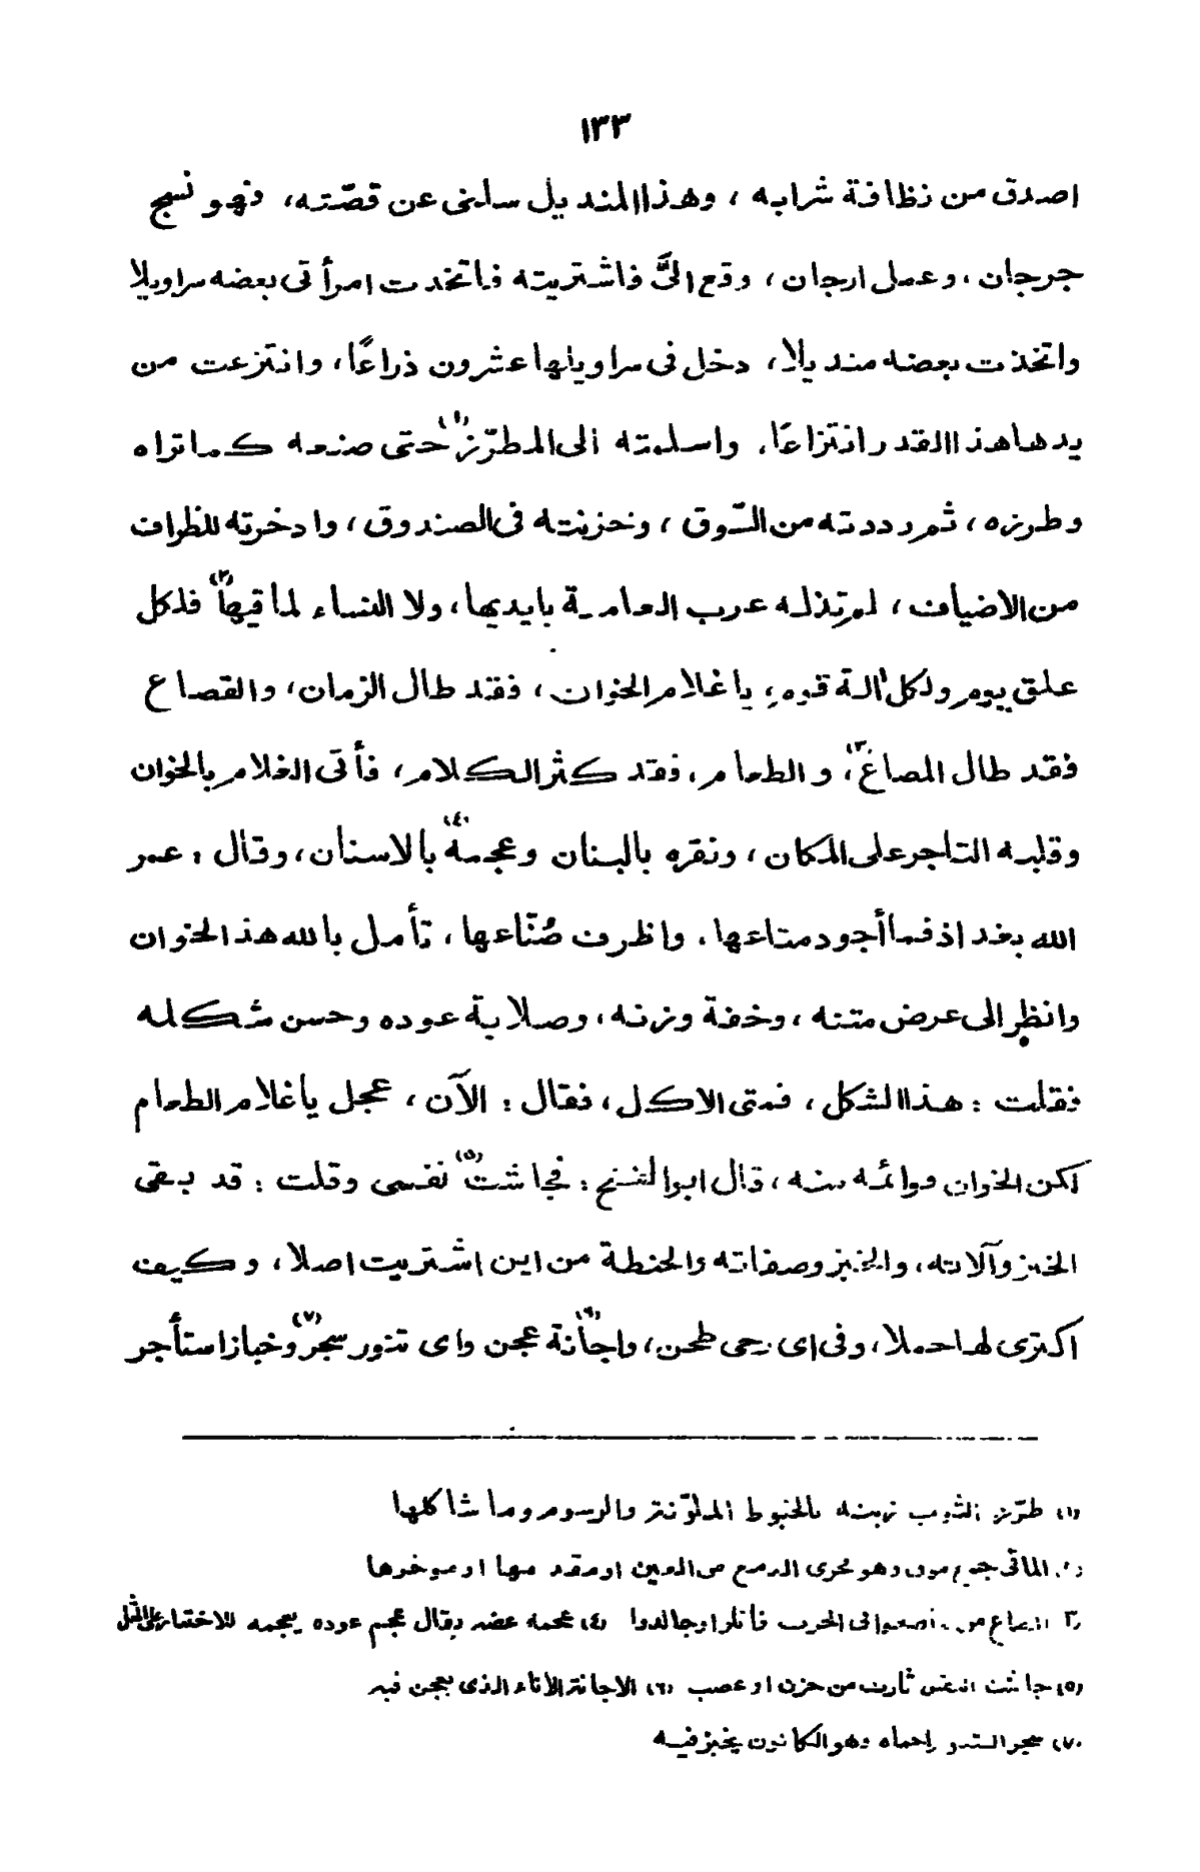 ١٣٣
اصدق من نظافة شرابه ، وهذا المنديل سلنى عن قصّته، فهو نسج
جرجان ، وعمل ارجان ، وقع الىَّ فاشتريته فاتخذت امرأتى بعضه سراويلا
واتخذت بعضه منديلا، دخل فى سراويلها عشرون ذراعًا، وانتزعت من
يدها هذا القدر انتزاعًا، واسلمته الى المطرّز(١) حتى صنعه كما تراه
وطرزه ، ثم رددته من السّوق ، وخزنته فى الصندوق ، وادخرته للظراف
من الاضياف ، لم تذله عرب العامة بايديها ، ولا النساء لماقيها(٢) فلكل
علق يوم ولكل الة قوم، يا غلام الخوان ، فقد طال الزمان، والقصاع
فقد طال المصاع(٣)، والطعام ، فقد كثر الكلام ، فأتى الغلام بالخوان
وقلبه التاجر على المكان ، ونقره بالبنان وعجمه(٤) بالاسنان ، وقال : عمر
الله بغداد فما أجود متاعها ، واظرف صُنّاعها ، تأمل بالله هذا الخوان
وانظر الى عرض متنه ، وخفة وزنه ، وصلابة عوده وحسن شكله
فقلت : هذا الشكل ، فمتى الاكل ، فقال : الآن ، عجل يا غلام الطعام
لكن الخوان قوائمه منه ، قال ابوالفتح : فجاشت(٥) نفسى وقلت : قد بقى
الخبز وآلاته ، والخبز وصفاته والحنطة من اين اشتريت اصلا ، وكيف
اكترى لها حملا ، وفى اى رحى طحن ، واجّانة(٦) عجن واى تنور سجر(٧) وخباز استأجر
(١) طرّز الثوب زينه بالخيوط الملوّنة والرسوم وما شاكلها
(٢) الماقى جمع موق وهو مجرى الدمع من العين او مقدمها او موخرها
(٣) المصاع من ماصعوا فى الحرب قاتلوا وجالدوا (٤) عجمه عضه ويقال عجم عوده يعجمه للاختبار على المثل
(٥) جاشت النفس ثارت من حزن او غضب (٦) الاجانة الأناء الذى يعجن فيه
(٧) سجر التنور احماه وهو الكانون يخبز فيه